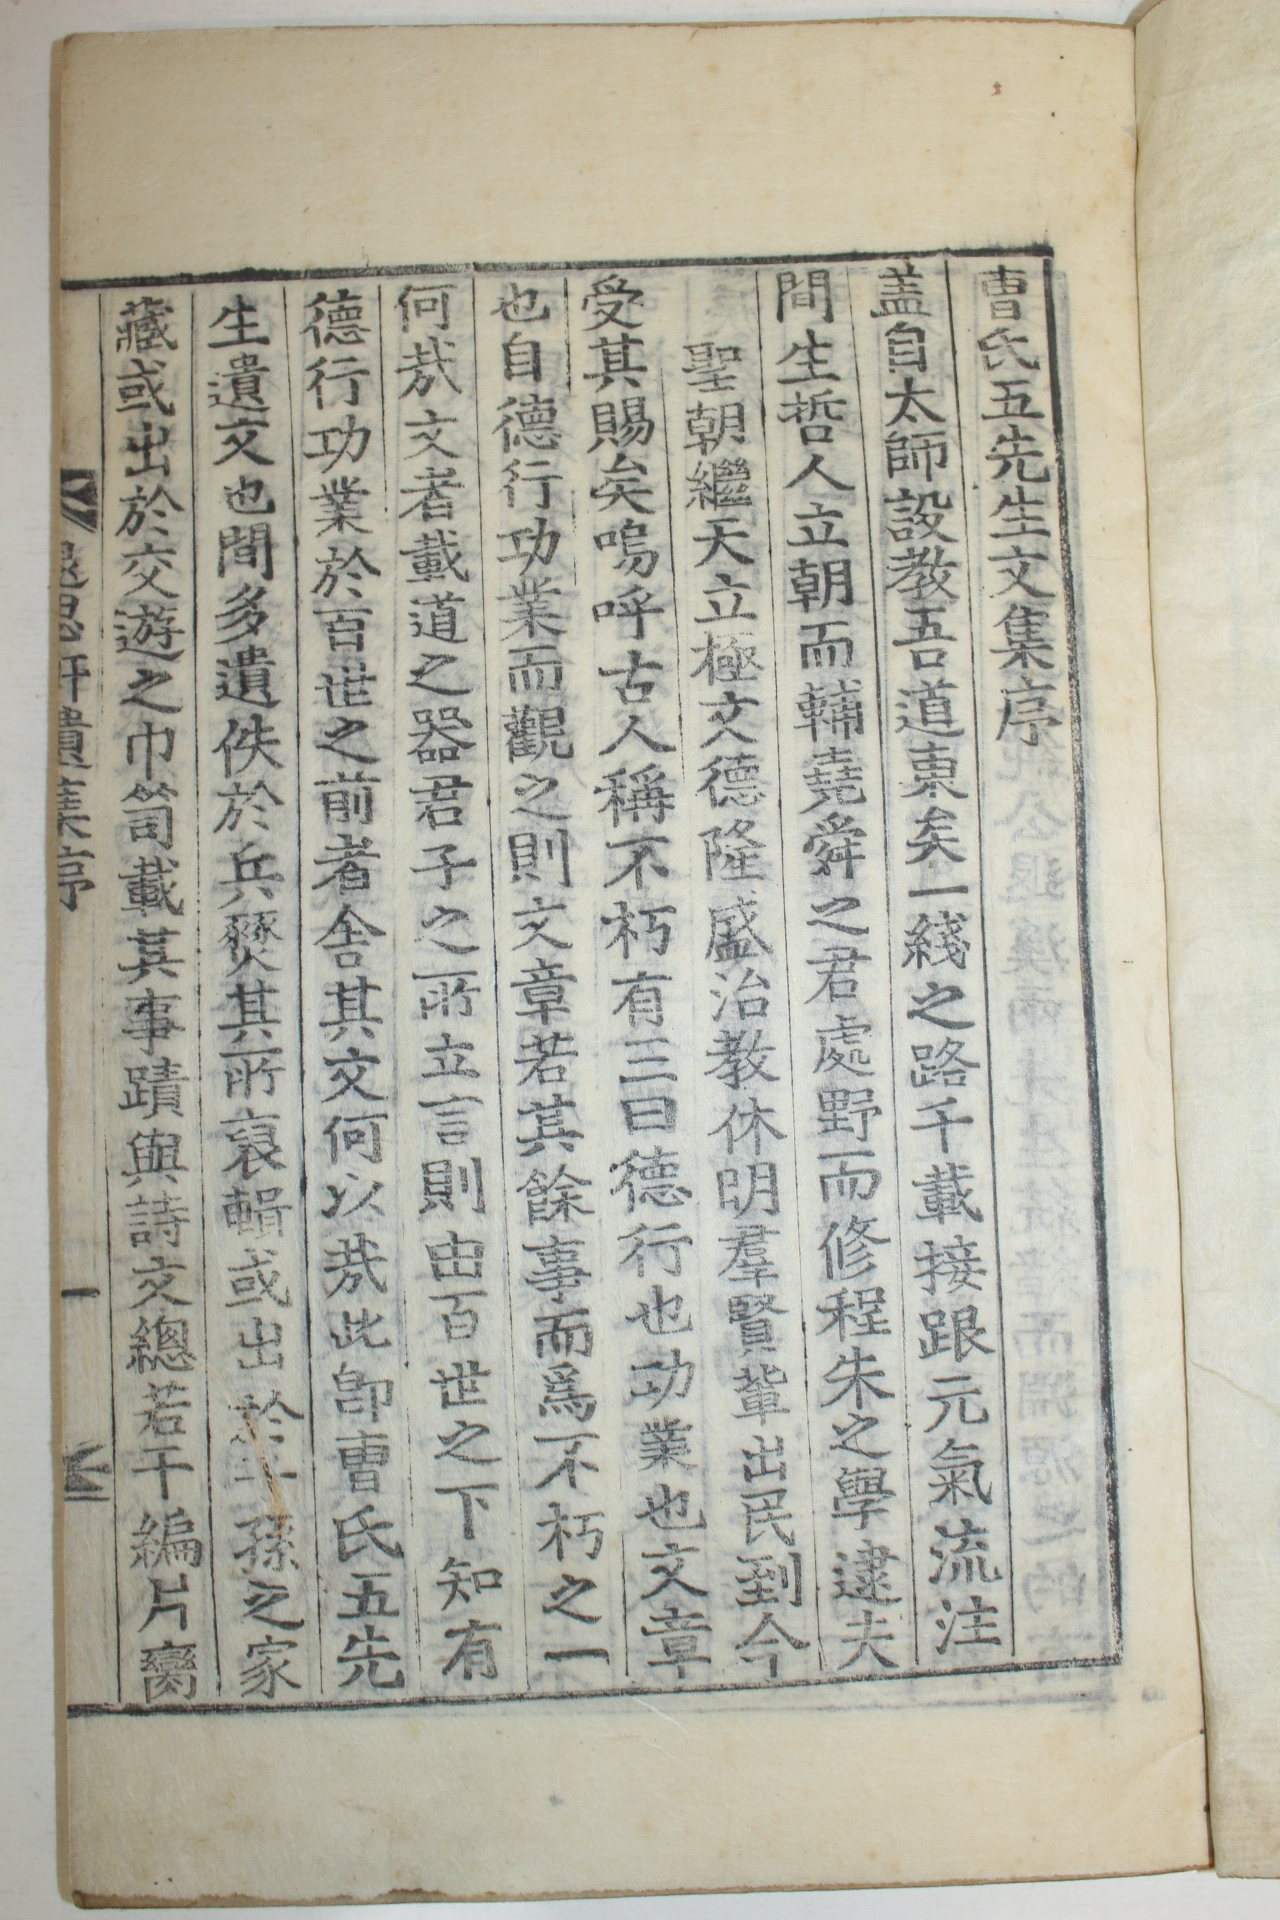 曺氏五先生文集序
盖自太師設教吾道東矣一綫之路千載接跟元氣流注
間生哲人立朝而輔堯舜之君處野而修程朱之學逮夫
聖朝繼天立極文德隆盛治教休明羣賢輩出民到今
受其賜矣嗚呼古人稱不朽有三曰德行也功業也文章
也自德行功業而觀之則文章若其餘事而爲不朽之一
何㢤文者載道之器君子之所立言則由百世之下知有
德行功業於百世之前者舍其文何以㢤此卽曺氏五先
生遺文也間多遺佚於兵燹其所裒輯或出於子孫之家
藏或出於交遊之巾笥載其事蹟與詩文總若干編片臠
遺集序
一